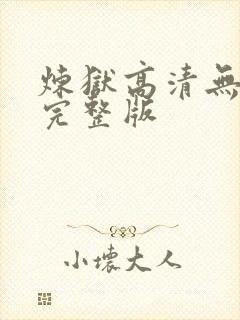 煉獄高清無
完整版
小壞大人